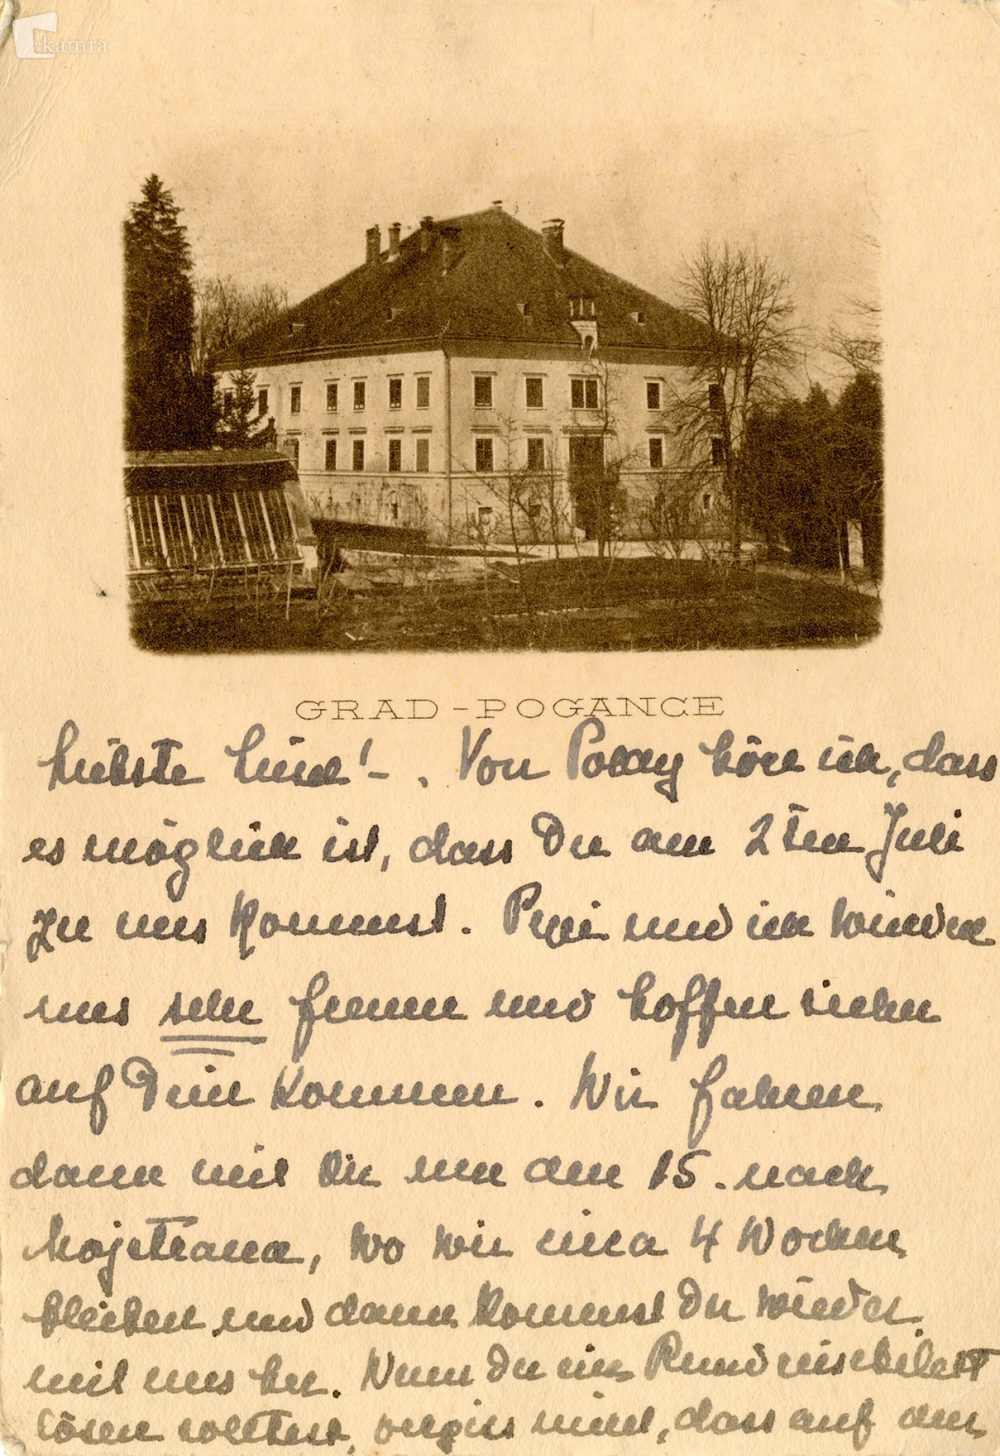 kamra
GRAD-POGANCE
Liebste Lind! - . Von Poldy höre ich, dass
es möglich ist, dass Du am 2ten Juli
zu uns kommst. Pepi und ich würden
uns sehr freuen und hoffen sicher
auf Dein Kommen. Wir fahren
dann mit Dir um den 15. nach
Mojstrana, wo wir circa 4 Wochen
bleiben und dann kommst Du wieder
mit uns her. Wenn Du ein Rundreisebilett
lösen solltest, vergiss nicht, dass auf dem